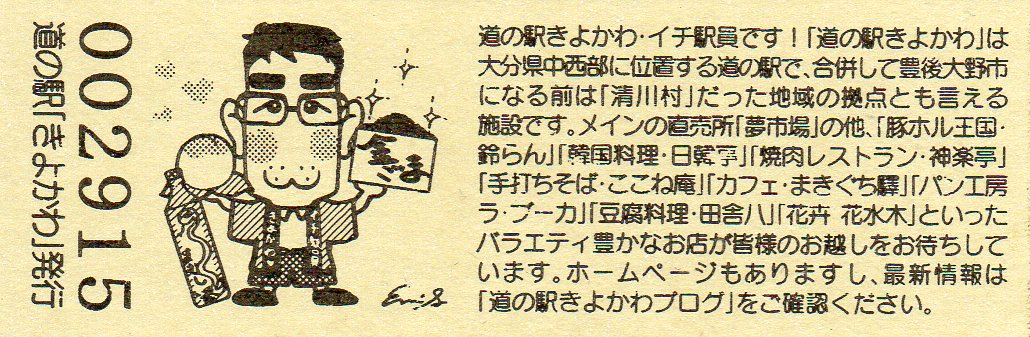 002915
道の駅「きよかわ」発行
金ごま
道の駅きよかわ・イチ駅員です！「道の駅きよかわ」は
大分県中西部に位置する道の駅で、合併して豊後大野市
になる前は「清川村」だった地域の拠点とも言える
施設です。メインの直売所「夢市場」の他、「豚ホル王国・
鈴らん」「韓国料理・日韓亭」「焼肉レストラン・神楽亭」
「手打ちそば・ここね庵」「カフェ・まきぐち驛」「パン工房
ラ・ブーカ」「豆腐料理・田舎八」「花卉 花水木」といった
バラエティ豊かなお店が皆様のお越しをお待ちして
います。ホームページもありますし、最新情報は
「道の駅きよかわブログ」をご確認ください。